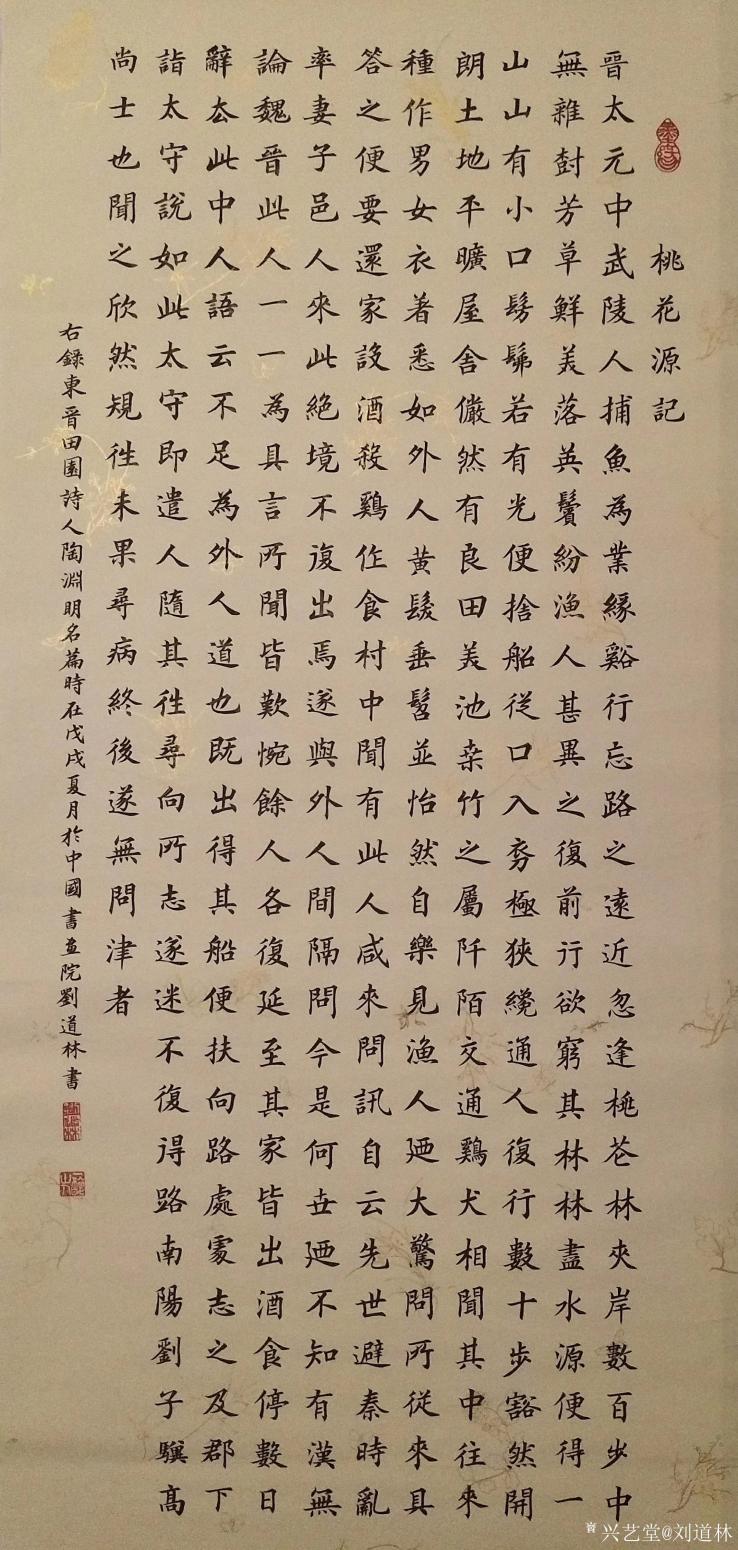 桃花源記
晉太元中武陵人捕魚為業緣谿行忘路之遠近忽逢桃芲林夾岸數百步中
無雜尌芳草鮮美落英鬢紛漁人甚異之復前行欲窮其林林盡水源便得一
山山有小口髣髴若有光便捨船從口入初極狹纔通人復行數十步豁然開
朗土地平曠屋舍儼然有良田美池桑竹之屬阡陌交通鷄犬相聞其中往來
種作男女衣著悉如外人黃髮垂髫並怡然自樂見漁人廼大驚問所從來具
答之便要還家設酒殺鷄作食村中聞有此人咸來問訊自云先世避秦時亂
率妻子邑人來此絕境不復出焉遂與外人間隔問今是何世廼不知有漢無
論魏晉此人一一為具言所聞皆歎惋餘人各復延至其家皆出酒食停數日
辭去此中人語云不足為外人道也既出得其船便扶向路處處志之及郡下
詣太守說如此太守即遣人隨其往尋向所志遂迷不復得路南陽劉子驥高
尚士也聞之欣然規往未果尋病終後遂無問津者
右錄東晉田園詩人陶淵明名篇時在戊戌夏月於中國書畫院劉道林書
兴艺堂@刘道林